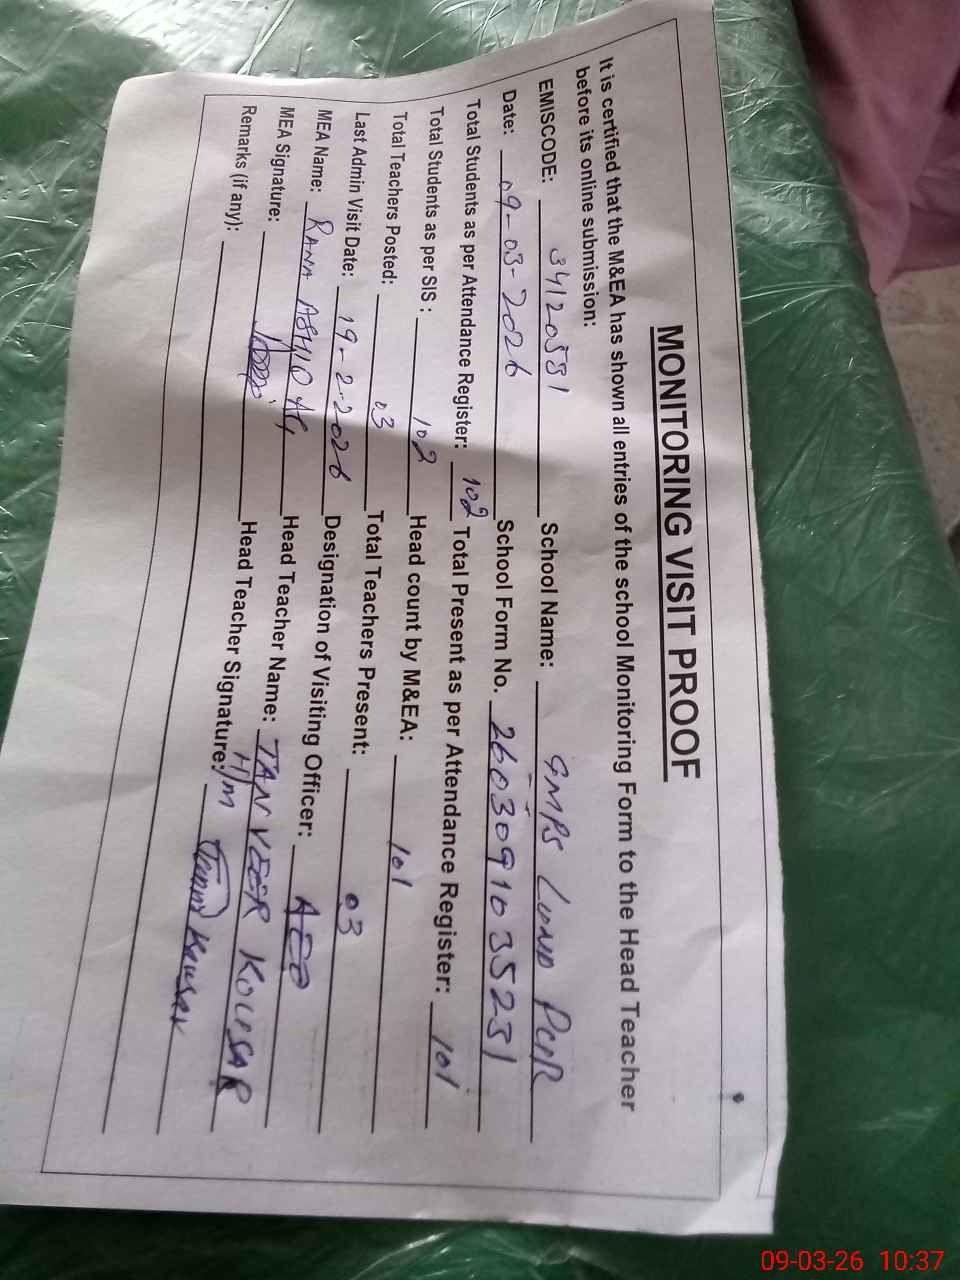 MONITORING VISIT PROOF
It is certified that the M&EA has shown all entries of the school Monitoring Form to the Head Teacher
before its online submission:
EMISCODE: 34120581 School Name: GMPS LUND PUR
Date: 09-03-2026 School Form No. 2603091035231
Total Students as per Attendance Register: 102 Total Present as per Attendance Register: 101
Total Students as per SIS : 102 Head count by M&EA: 101
Total Teachers Posted: 03 Total Teachers Present: 03
Last Admin Visit Date: 19-2-2026 Designation of Visiting Officer: AEO
MEA Name: RANA Head Teacher Name: TANVEER KOUSAR
MEA Signature: Head Teacher Signature: H/M Kausar
Remarks (if any):
09-03-26 10:37